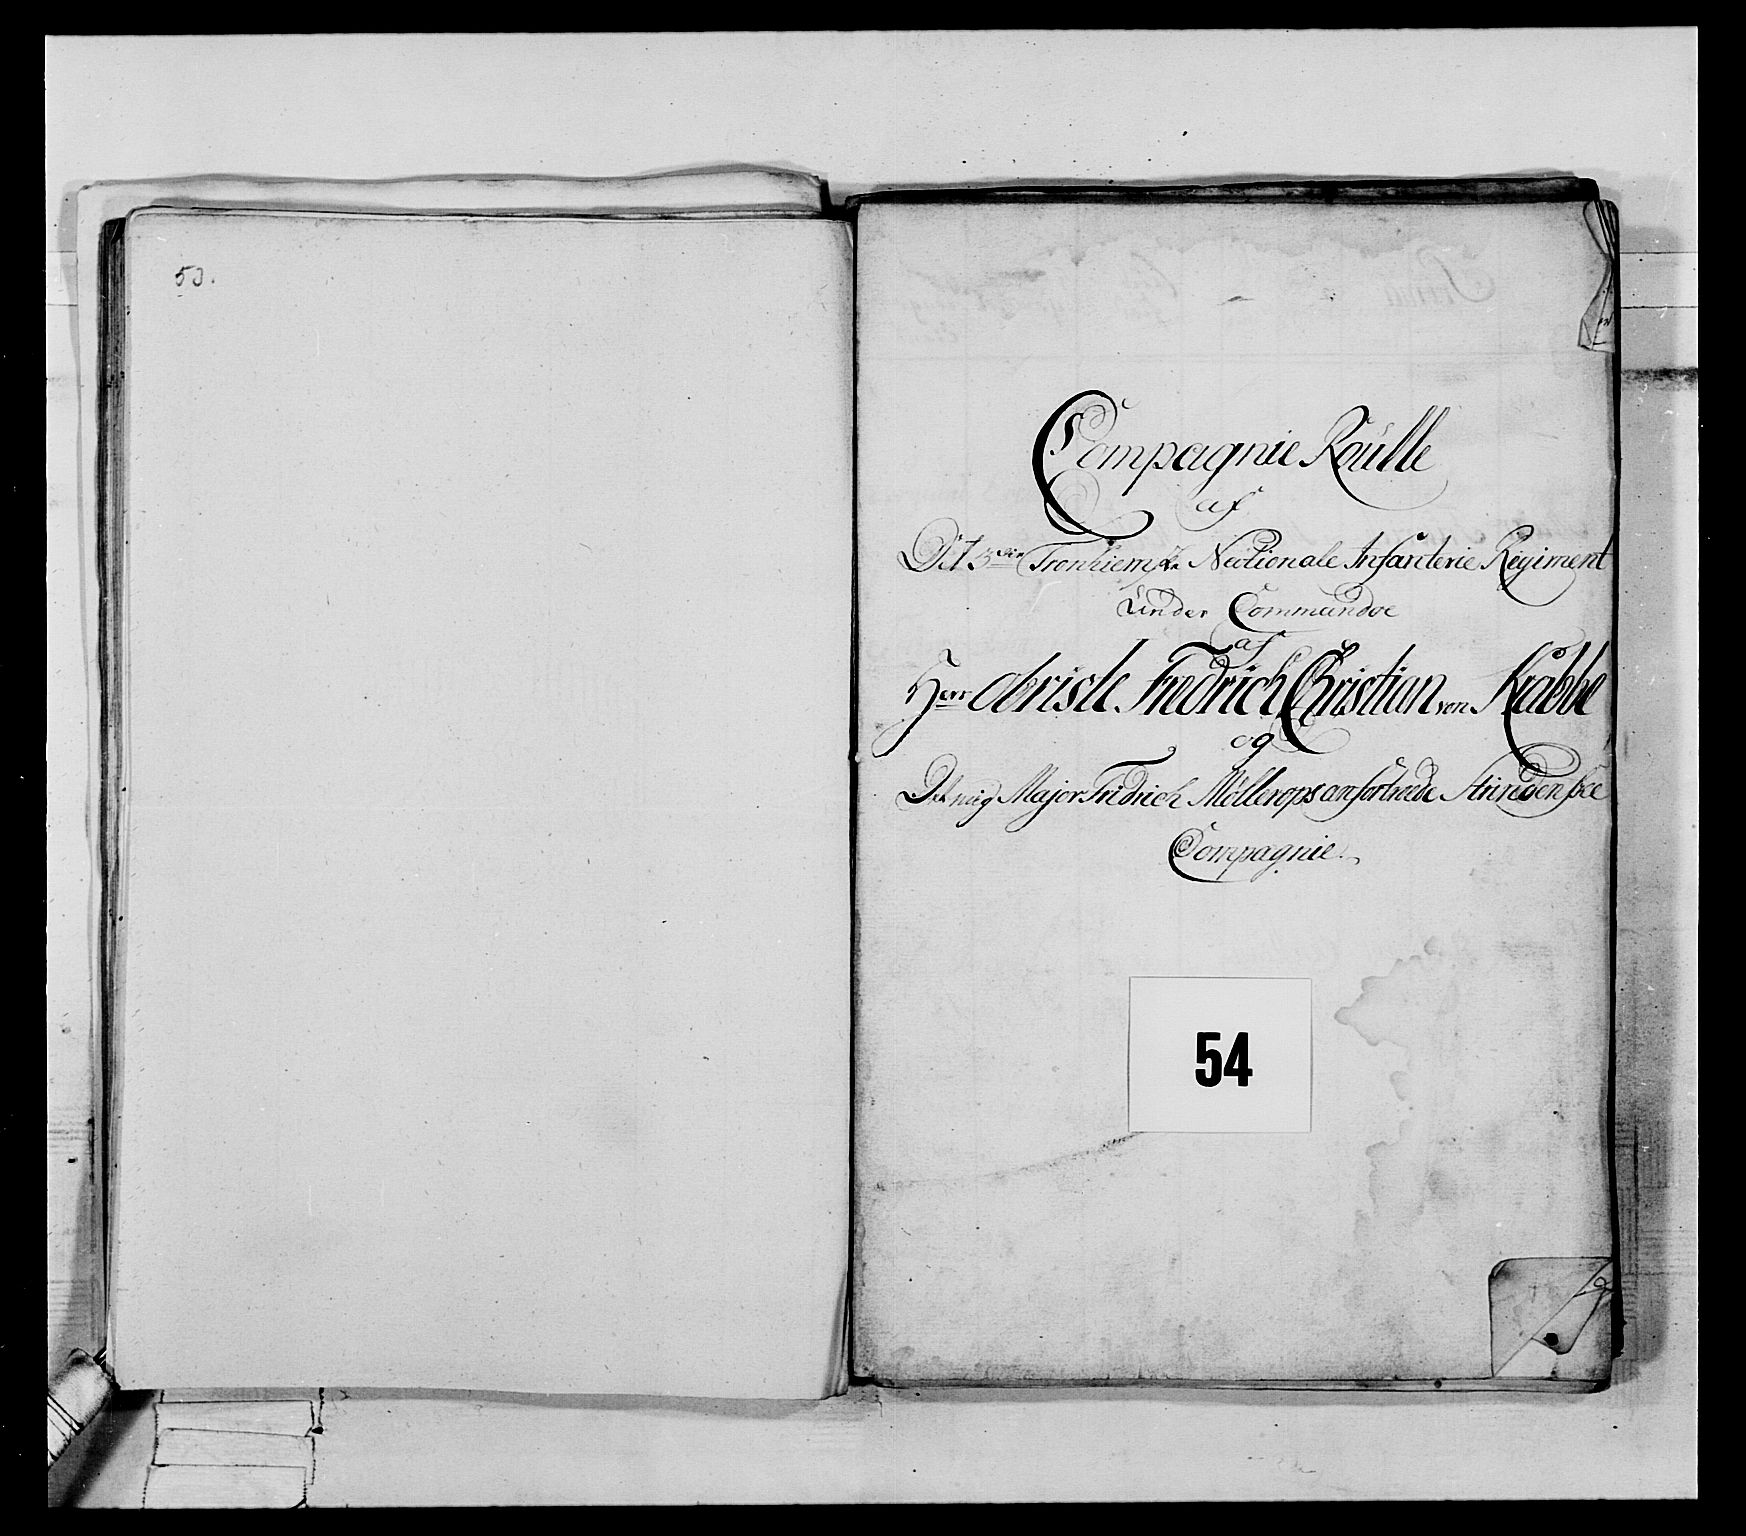 53.
Compagnie Roulle
af
Det 3die Tronhiemske Nationale Infanterie Regiment
Under Commandoe
af
Herr Obriste Fredrich Christian von Krabbe
og
Det mig Major Fridrich Møllerops anfortroede Strindenske
Compagnie.
54